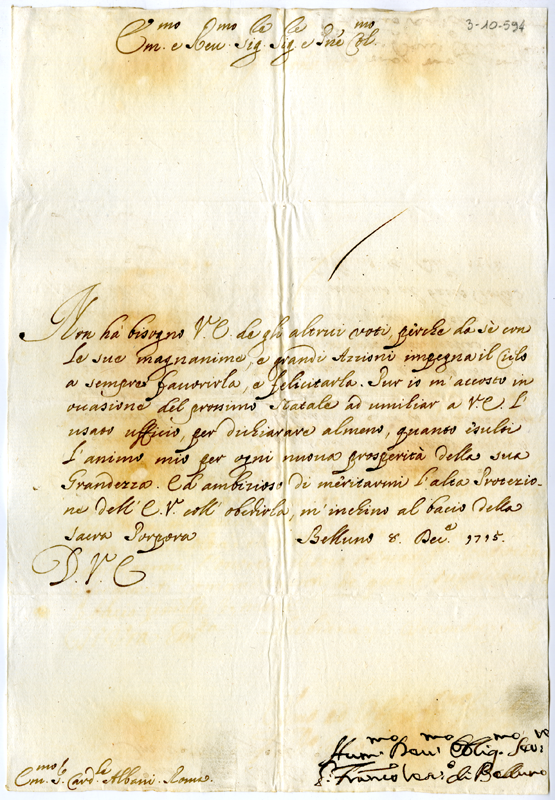 3-10-594
Em.mo e Rev.mo Sig.re Sig.re e Pne Col.mo
Non hà bisogno V. E. de gli altrui voti, perche da sè con
le sue magnanime, e grandi Azzioni impegna il Cielo
a sempre favorirla, e felicitarla. Pur io m'accosto in
occasione del prossimo Natale ad umiliar a V. E. l'
usato ufficio, per dichiarare almeno, quanto èsulti
l'animo mio per ogni nuova prosperità della sua
Grandezza. Ed ambizioso di mèritarmi l'alta Protezio-
ne dell' E. V. coll' obedirla, m'inchino al bacio della
Sacra Porpora Belluno 8. Dec.o 1715.
D. V. E.
Hum.mo Dev.mo Oblig.mo Ser.re
Franc.o Ves.o di Belluno
Em.mo S. Card.le Albani. Roma.